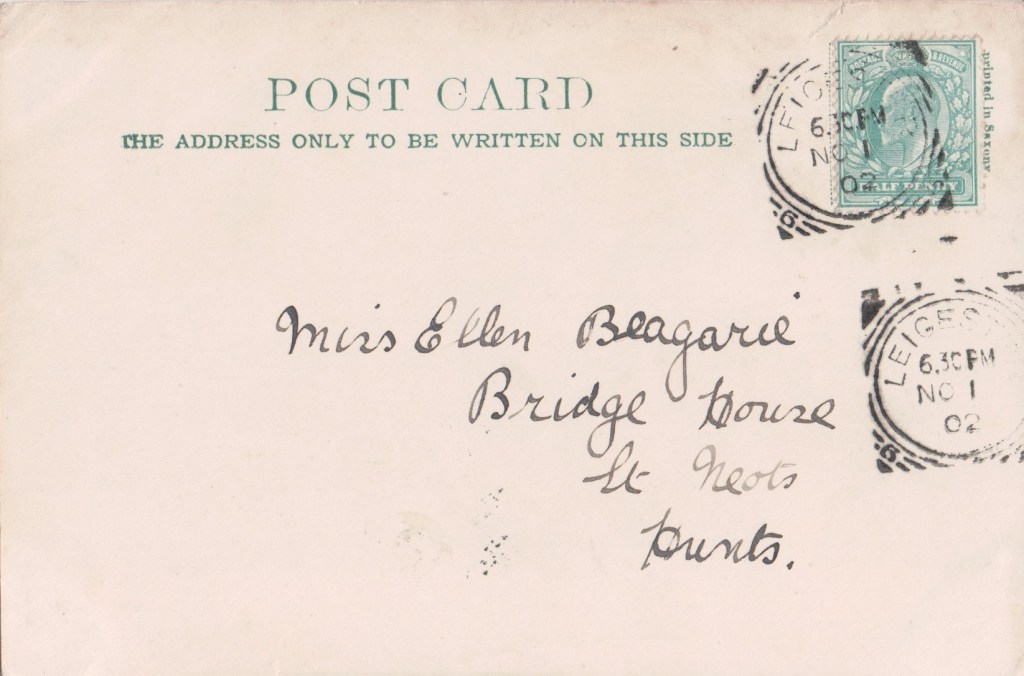 POST CARD
THE ADDRESS ONLY TO BE WRITTEN ON THIS SIDE
printed in Saxony.
HALF PENNY
LEICEST
6.30PM
NO 1
02
6
Miss Ellen Beagarie
Bridge House
St Neots
Hunts.
LEICEST
6.30PM
NO 1
02
6